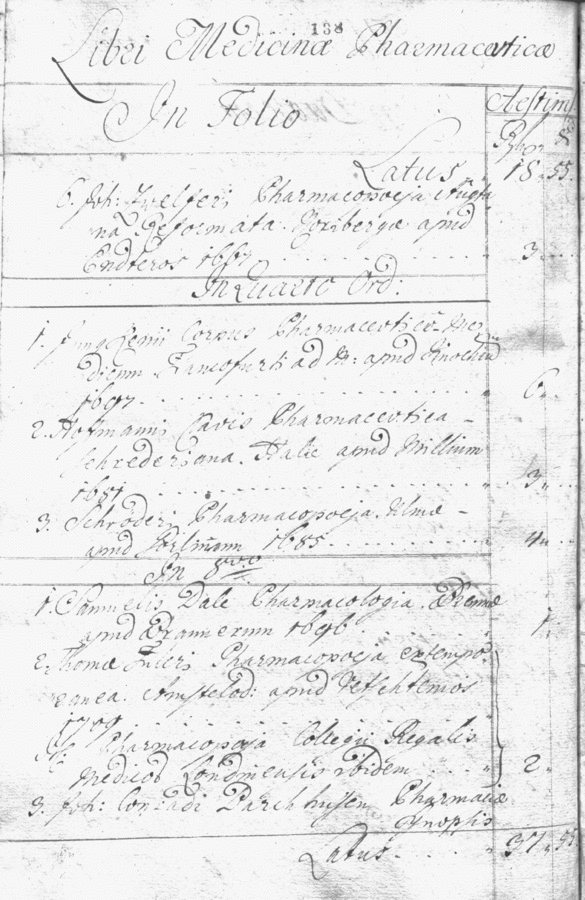 138
Libri Medicinæ Pharmaceuticæ
In Folio
Aestim
Latus 18 55
6. Joh: Zwelferi Pharmacopoeja Augusta
na Reformata. Noribergæ apud
Endteros 1667 3
In Quarto Ord:
1. Jungkenii Corpus Pharmaceuticū Me
dicum. Francofurti ad M: apud Knochium
1697 6
2. Hofmanni Clavis Pharmaceutica
Schrederiana. Halæ apud Millium
1681 3
3. Schroderi Pharmacopoeja. Ulmæ
apud 1685 4
In 8vo
1. Samuelis Dale Pharmacologia. Bremæ
apud Bramerum 1696 1
2. Thomæ Fuleri Pharmacopoeja extempo
ranea. Amstelod: apud Wetschtenios
1709
Pharmacopoeja Collegii Regalis
Medicor Londinensis ibidem 2
3. Joh: Conradi Barchhusen Pharmaciæ
Synopsis
Latus 37 55